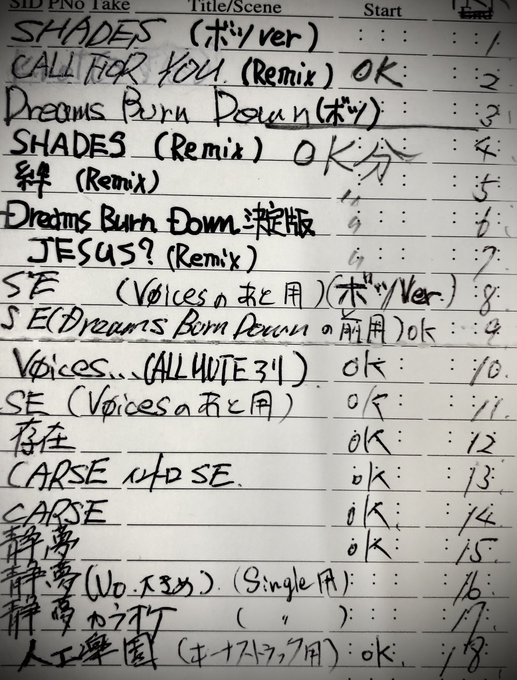 SID PNo Take Title/Scene Start End
SHADES (ボツver) : : : : : : 1
CALL FOR YOU (Remix) OK : : : 2
Dreams Burn Down (ボツ) : : : 3
SHADES (Remix) OK分 : : : 4
絆 (Remix) 〃 : : : 5
Dreams Burn Down 決定版 〃 : : : 6
JESUS? (Remix) 〃 : : : 7
SE (Vøicesのあと用) (ボツVer.) 8
SE (Dreams Burn Downの前用) OK 9
Vøices... (ALL MUTEあり) OK : : : 10
SE (Vøicesのあと用) OK : : : 11
存在 OK : : : 12
CARSE イントロSE. OK : : : 13
CARSE OK : : : 14
静夢 OK : : : 15
静夢 (Vo.大きめ) (Single用) : : : 16
静夢 カラオケ ( 〃 ) : : : 17
人工楽園 (ボーナストラック用) OK. : : : 18